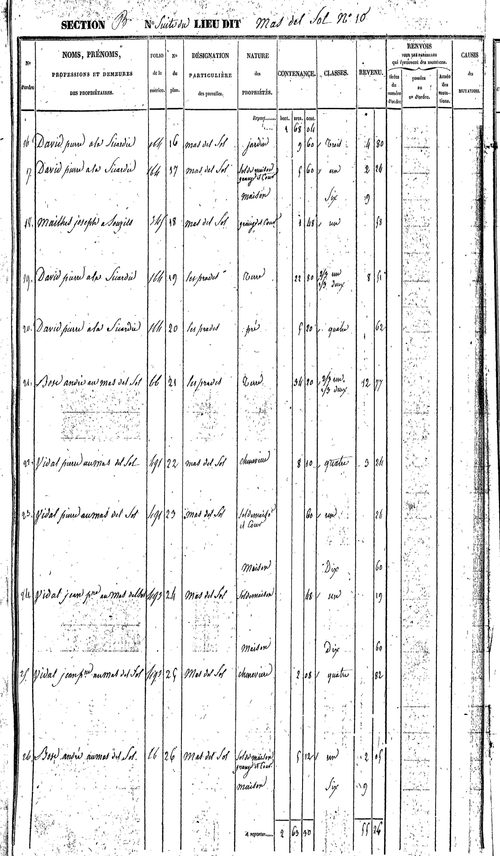 SECTION B N° Suite du LIEU DIT Mas del Sol N° 10
N° d'ordre
NOMS, PRÉNOMS, PROFESSIONS ET DEMEURES DES PROPRIÉTAIRES.
FOLIO de la matrice.
N° du plan.
DÉSIGNATION PARTICULIÈRE des parcelles.
NATURE des PROPRIÉTÉS.
CONTENANCE.
CLASSES.
REVENU.
RENVOIS
CAUSES des MUTATIONS.
Report hect. ares. cent.
1 68 04
16. David pierre a la Sicardié 164 16 mas del Sol jardin 9 60 Trois 4 80
17. David pierre a la Sicardié 164 17 mas del Sol Sol de maison grange et Cour 5 60 un 2 26
maison Six 9
18. Mailhes joseph a 345 18 mas del Sol grange et Cour 1 48 un 53
19. David pierre a la Sicardié 164 19 les prades Terre 22 80 2/3 un 1/3 deux 8 51
20. David pierre a la Sicardié 164 20 les prades pré 5 80 quatre 62
21. Bosc andre au mas del Sol 66 21 les prades Terre 34 20 2/3 un 1/3 deux 12 77
22. Vidal pierre au mas del Sol 491 22 mas del Sol cheneviere 8 10 quatre 3 24
23. Vidal pierre au mas del Sol 491 23 mas del Sol Sol de maison et Cour 60 un 26
Maison Dix 60
24. Vidal jean pre au mas del Sol 493 24 Mas del Sol Sol de maison 48 un 19
Maison Dix 60
25. Vidal jean pre au mas del Sol 493 25 Mas del Sol cheneviere 2 08 quatre 82
26. Bosc andré au mas del Sol 66 26 Mas del Sol Sol de maison grange et Cour 5 12 un 2 05
maison Six 9
à reporter 2 63 90 55 26